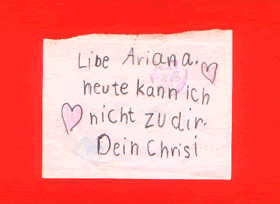 Libe Ariana.
heute kann ich
nicht zu dir.
Dein Chrisi